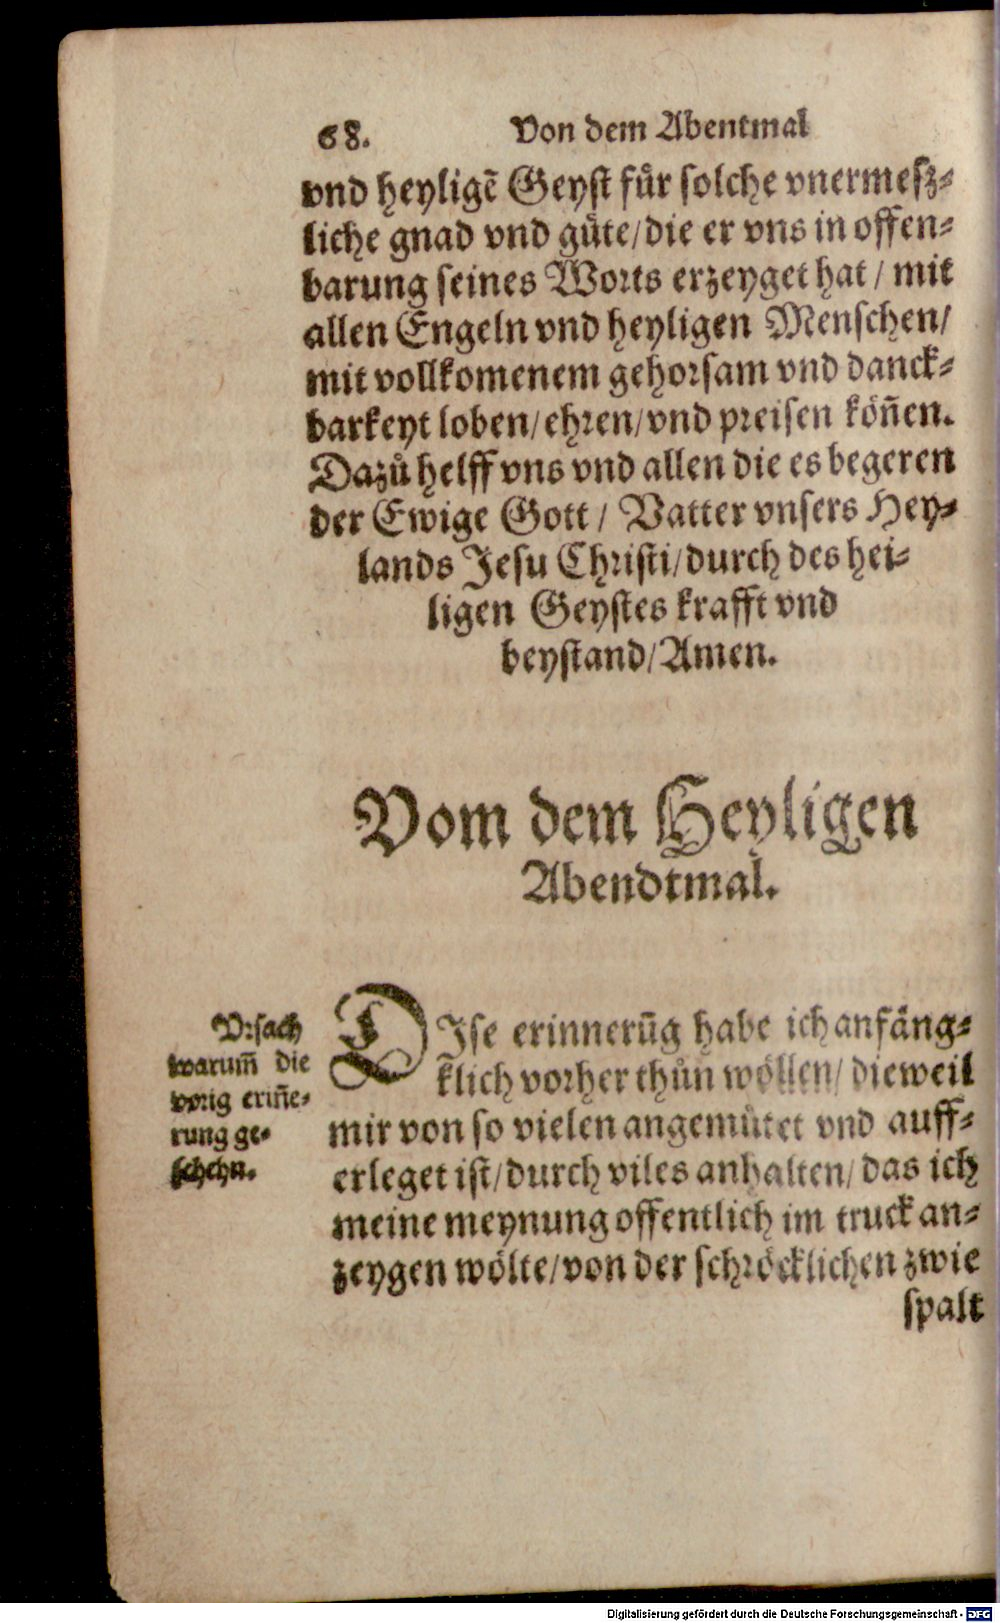 68. Von dem Abentmal
vnd heyligē Geyst fuͤr solche vnermesz-
liche gnad vnd guͤte/die er vns in offen-
barung seines Worts erzeyget hat / mit
allen Engeln vnd heyligen Menschen/
mit vollkomenem gehorsam vnd danck-
barkeyt loben/ehren/vnd preisen koͤñen.
Dazuͦ helff vns vnd allen die es begeren
der Ewige Gott / Vatter vnsers Hey-
lands Jesu Christi/durch des hei-
ligen Geystes krafft vnd
beystand/Amen.
Vom dem Heyligen
Abendtmal.
Vrsach
warum̃ die
vorig eriñe-
rung ge-
schehn.
DIse erinnerũg habe ich anfaͤng-
klich vorher thuͦn woͤllen/ dieweil
mir von so vielen angemuͤtet vnd auff-
erleget ist/durch viles anhalten/das ich
meine meynung offentlich im truck an-
zeygen woͤlte/von der schroͤcklichen zwie
spalt
Digitalisierung gefördert durch die Deutsche Forschungsgemeinschaft - DFG